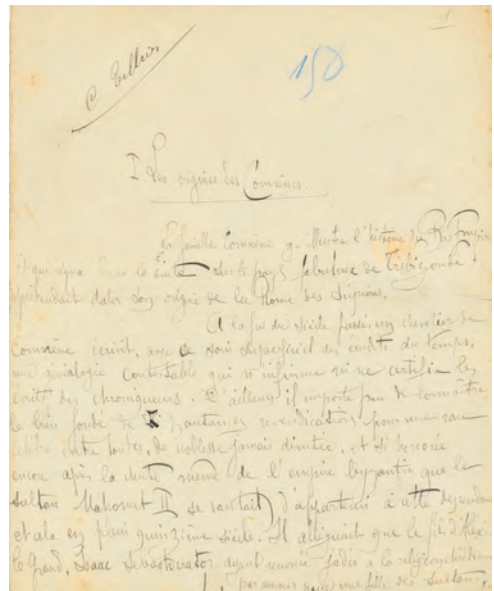 1
150
I Les origines des Comnènes.
La famille Comnène qui illustra l'histoire du Bas Empire
et qui régna dans la suite sur le pays fabuleux de Trébizonde
prétendait dater son origine de la Rome des Siguiens.
A la fin du siècle passé, un chevalier de
Comnène écrivit, avec ce soin superficiel des érudits du temps,
une généalogie contestable qui n'infirme ni ne certifia les
écrits des chroniqueurs. D'ailleurs il importe peu de connaître
le bien fondé de revendications pour une race
célèbre entre toutes, de noblesse jamais discutée, et si honorée
encore après la chute même de l'empire byzantin que le
sultan Mahomet II se vantait d'appartenir à cette descendance
et cela en plein quinzième siècle. Il alléguait que le fils d'Alexis
le Grand, Isaac Sébastocrator, ayant renoncé jadis à la religion chrétienne
par amour pour une fille des sultans,